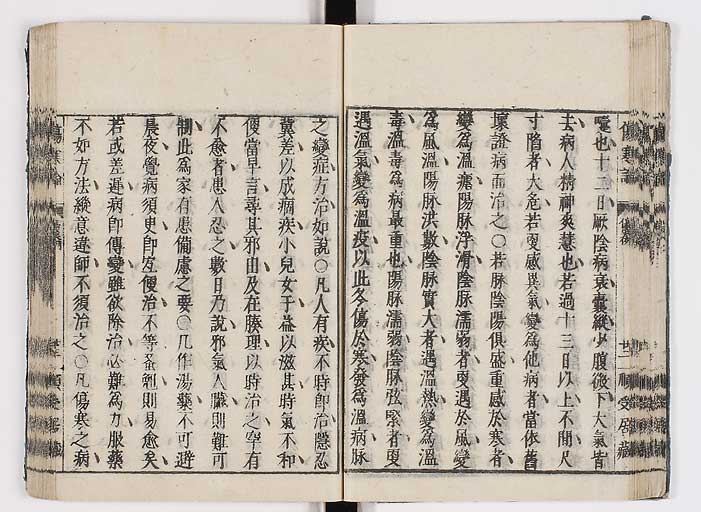 嚏也十三日厥陰病衰囊縱少腹微下大氣皆
去病人精神爽慧也若過十三日以上不間尺
寸陷者大危若更感異氣變為他病者當依舊
壞證病而治之〇若脉陰陽俱盛重感於寒者
變為溫瘧陽脉浮滑陰脉濡弱者更遇於風變
為風溫陽脉洪數陰脉實大者遇溫熱變為溫
毒溫毒為病最重也陽脉濡弱陰脉弦緊者更
遇溫氣變為溫疫以此冬傷於寒發為溫病脉
之變症方治如說〇凡人有疾不時即治隱忍
冀差以成痼疾小兒女子益以滋甚時氣不和
便當早言尋其邪由及在腠理以時治之罕有
不愈者患人忍之數日乃說邪氣入臟則難可
制此為家有患備慮之要〇凡作湯藥不可避
晨夜覺病須臾即宜便治不等早晚則易愈矣
若或差遲病即傳變雖欲除治必難為力服藥
不如方法縱意違師不須治之〇凡傷寒之病
傷寒論